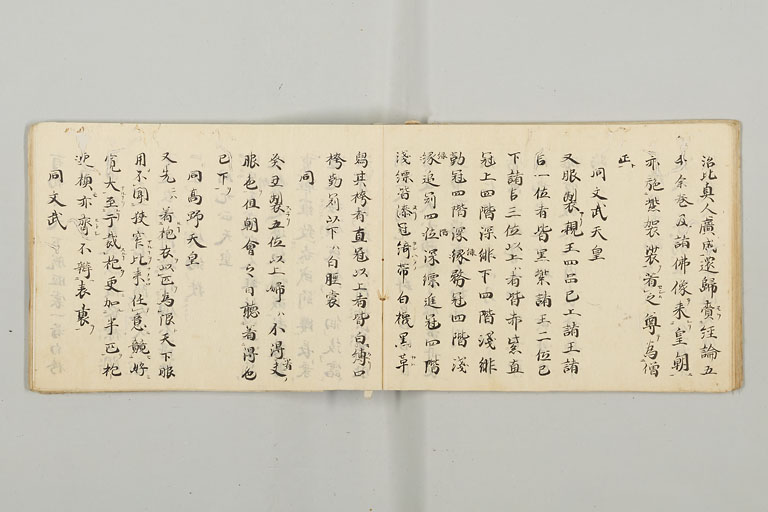 治比真人廣成還歸賷經論五
千余巻及諸佛像来皇朝
亦施紫袈裟着之尊為僧
正
同文武天皇
又服製親王四品已上諸王諸
臣一位者皆黒紫諸王二位已
下諸臣三位以上者皆赤紫直
冠上四階深緋下四階淺緋
勤冠四階深緑務冠四階淺
緑追冠四位深縹進冠四階
淺縹皆漆冠綺帯白襪黒革
舄其袴者直冠以上者皆白縛口
袴勤冠以下白脛裳
同
癸丑製五位以上婦不得丈
服色但朝會之日聽着得色
已下
同高野天皇
又先着袍衣以疋為限天下服
用不聞狭窄比来任意競好
寛大至于裁袍更加半疋袍
襖
同文武